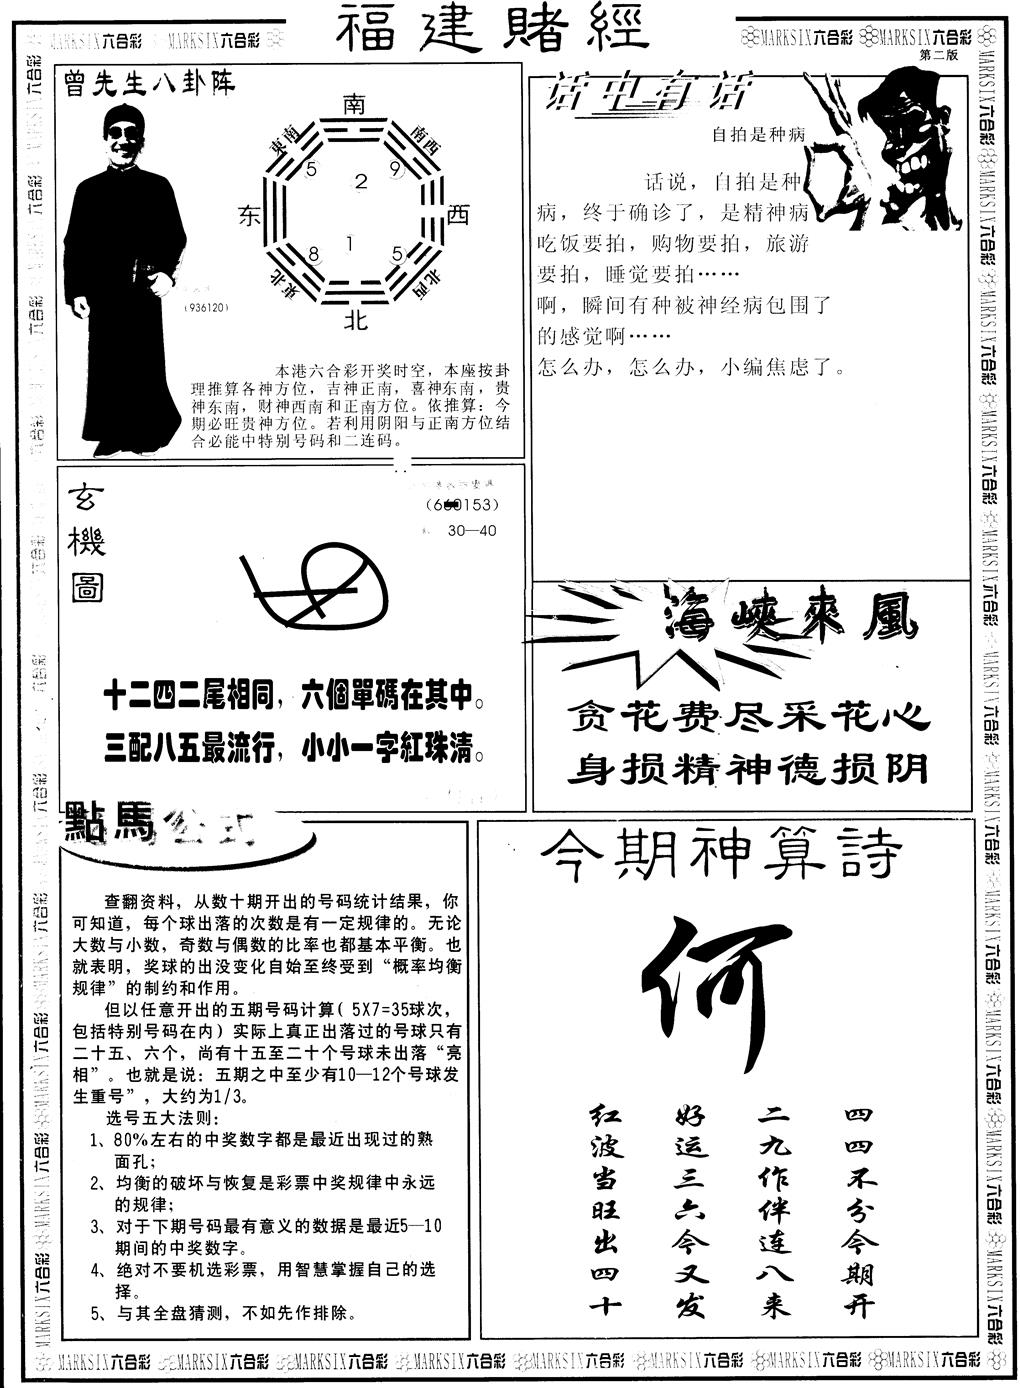 福建賭經
MARKSIX六合彩 MARKSIX六合彩
MARKSIX六合彩 MARKSIX六合彩
第二版
曾先生八卦阵
南
東南
南西
5
9
2
东
西
8
1
5
東北
北西
北
(936120)
本港六合彩开奖时空，本座按卦
理推算各神方位，吉神正南，喜神东南，贵
神东南，财神西南和正南方位。依推算：今
期必旺贵神方位。若利用阴阳与正南方位结
合必能中特别号码和二连码。
话中有话
自拍是种病
话说，自拍是种
病，终于确诊了，是精神病
吃饭要拍，购物要拍，旅游
要拍，睡觉要拍……
啊，瞬间有种被神经病包围了
的感觉啊……
怎么办，怎么办，小编焦虑了。
玄機圖
30—40
十二四二尾相同，六個單碼在其中。
三配八五最流行，小小一字紅珠清。
海峽來風
贪花费尽采花心
身损精神德损阴
點馬公式
查翻资料，从数十期开出的号码统计结果，你
可知道，每个球出落的次数是有一定规律的。无论
大数与小数，奇数与偶数的比率也都基本平衡。也
就表明，奖球的出没变化自始至终受到“概率均衡
规律”的制约和作用。
但以任意开出的五期号码计算( 5X7=35球次，
包括特别号码在内) 实际上真正出落过的号球只有
二十五、六个，尚有十五至二十个号球未出落“亮
相”。也就是说：五期之中至少有10—12个号球发
生重号”，大约为1/3。
选号五大法则：
1、80%左右的中奖数字都是最近出现过的熟
面孔；
2、均衡的破坏与恢复是彩票中奖规律中永远
的规律；
3、对于下期号码最有意义的数据是最近5—10
期间的中奖数字。
4、绝对不要机选彩票，用智慧掌握自己的选
择。
5、与其全盘猜测，不如先作排除。
今期神算詩
何
四四不分今期开
二九作伴连八来
好运三六今又发
红波当旺出四十
MARKSIX六合彩 MARKSIX六合彩 MARKSIX六合彩 MARKSIX六合彩 MARKSIX六合彩 MARKSIX六合彩 MARKSIX六合彩 MARKSIX六合彩